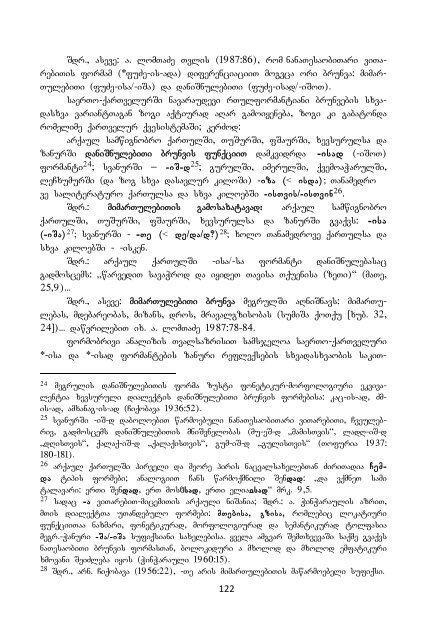 შდრ., ასევე: ა. ლომთაძე თვლის (1987:86), რომ ნანათესაობითარი ვითა-
რებითის ფორმამ (*ფუძე-ის-ადა) დიფერენციაციით მოგვცა ორი ბრუნვა: მიმარ-
თულებითი (ფუძე-ისა/-იშა) და დანიშნულებითი (ფუძე-ისად/-იშოთ).
საერთო-ქართველურში ნავარაუდევი რთულფორმანტიანი ბრუნვების სხვა-
დასხვა ვარიანტთაგან ზოგი აქტიურად აღარ გამოიყენება, ზოგი კი გაბატონდა
რომელიმე ქართველურ ქვესისტემაში; კერძოდ:
არქაულ სამწიგნობრო ქართულში, თუშურში, ფშაურში, ხევსურულსა და
ზანურში დანიშნულებითი ბრუნვის ფუნქციით დამკვიდრდა -ისად (-იშოთ)
ფორმანტი24; სვანურში – -იშ-დ25; გურულში, იმერულში, ქვემოაჭარულში,
ლეჩხუმურში (და ზოგ სხვა დასავლურ კილოში) -იზა (< ისდა); თანამედრო
ვე სალიტერატურო ქართულსა და სხვა კილოებში -ისთვის/-ისთვინ26.
შდრ.: მიმართულებითის გამოსახატავად: არქაულ სამწიგნობრო
ქართულში, თუშურში, ფშაურში, ხევსურულსა და ზანურში გვაქვს: -ისა
(-იშა)27; სვანურში - -თე (< დე/და/დ?)28; ხოლო თანამედროვე ქართულსა და
სხვა კილოებში - -ისკენ.
შდრ.: არქაულ ქართულში -ისა/-სა ფორმანტი დანიშნულებასაც
გადმოსცემს: „წარვედით სავაჭროდ და იყიდეთ თავისა თქუენისა (ზეთი)“ (მათე,
25,9)...
შდრ., ასევე: მიმართულებითი ბრუნვა მეგრულში აღნიშნავს: მიმართუ-
ლებას, მდებარეობას, მიზანს, დროს, მრავალგზისობას (სუმიშა ქოთქუ [ხუბ. 32,
24])... დაწვრილებით იხ. ა. ლომთაძე 1987:78-84.
ფორმობრივი ანალიზის თვალსაზრისით სამსჯელოა საერთო-ქართველური
*-ისა და *-ისად ფორმანტების ზანური რეფლექსების სხვადასხვაობის საკით-
24 მეგრულის დანიშნულებითის ფორმა ზუსტი ფონეტიკურ-მორფოლოგიური ეკვივა-
ლენტია ხევსურული დიალექტის დანიშნულებითი ბრუნვის ფორმებისა: კაც-ის-ად, ძმ-
ის-ად, ამხანაგ-ის-ად (ჩიქობავა 1936:52).
25 სვანურში -იშ-დ დაბოლოებით წარმოებული ნანათესაობითარი ვითარებითი, ჩვეულებ-
რივ, გადმოსცემს დანიშნულებითის მნიშვნელობას (მუ-ეშ-დ „მამისთვის“, ლადღ-იშ-დ
„დღისთვის“, ქალაქ-იშ-დ „ქალაქისთვის“, გუმ-იშ-დ „გულისთვის“ (თოფურია 1937:
180-181).
26 არქაულ ქართულში პირველი და მეორე პირის ნაცვალსახელებთან ძირითადია ჩემ-
და ტიპის ფორმები; ანალოგიით ჩანს წარმოქმნილი შენდად: „და ვქმნეთ სამი
ტალავარი: ერთი შენდად, ერთ მოსჱსად, ერთი ელიაჲსად“ მრკ. 9,5.
27 სადაც -ა ვითარებით-მიცემითის არქაული ნიშანია; შდრ.: ა. ჭინჭარაულის აზრით,
მთის დიალექტთა უთანდებულო ფორმები: მთებისა, გზისა, რომლებიც ლოკატიური
ფუნქციითაა ნახმარი, ფონეტიკურად, მორფოლოგიურად და სემანტიკურად ტოლფასია
მეგრ.-ჭანური -შა/-იშა სუფიქსიანი სახელებისა. ყველა ამგვარ შემთხვევაში საქმე გვაქვს
ნათესაობითი ბრუნვის ფორმასთან, ბოლოკიდური ა მხოლოდ და მხოლოდ ემფატიკური
ხმოვანი შეიძლება იყოს (ჭინჭარაული 1960:15).
28 შდრ., არნ. ჩიქობავა (1956:22), -თე არის მიმართულებითის მაწარმოებელი სუფიქსი.
122